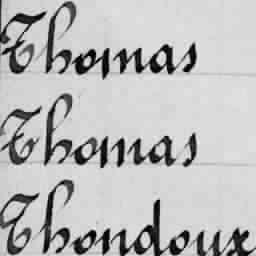 Thomas
Thomas
Thondoux